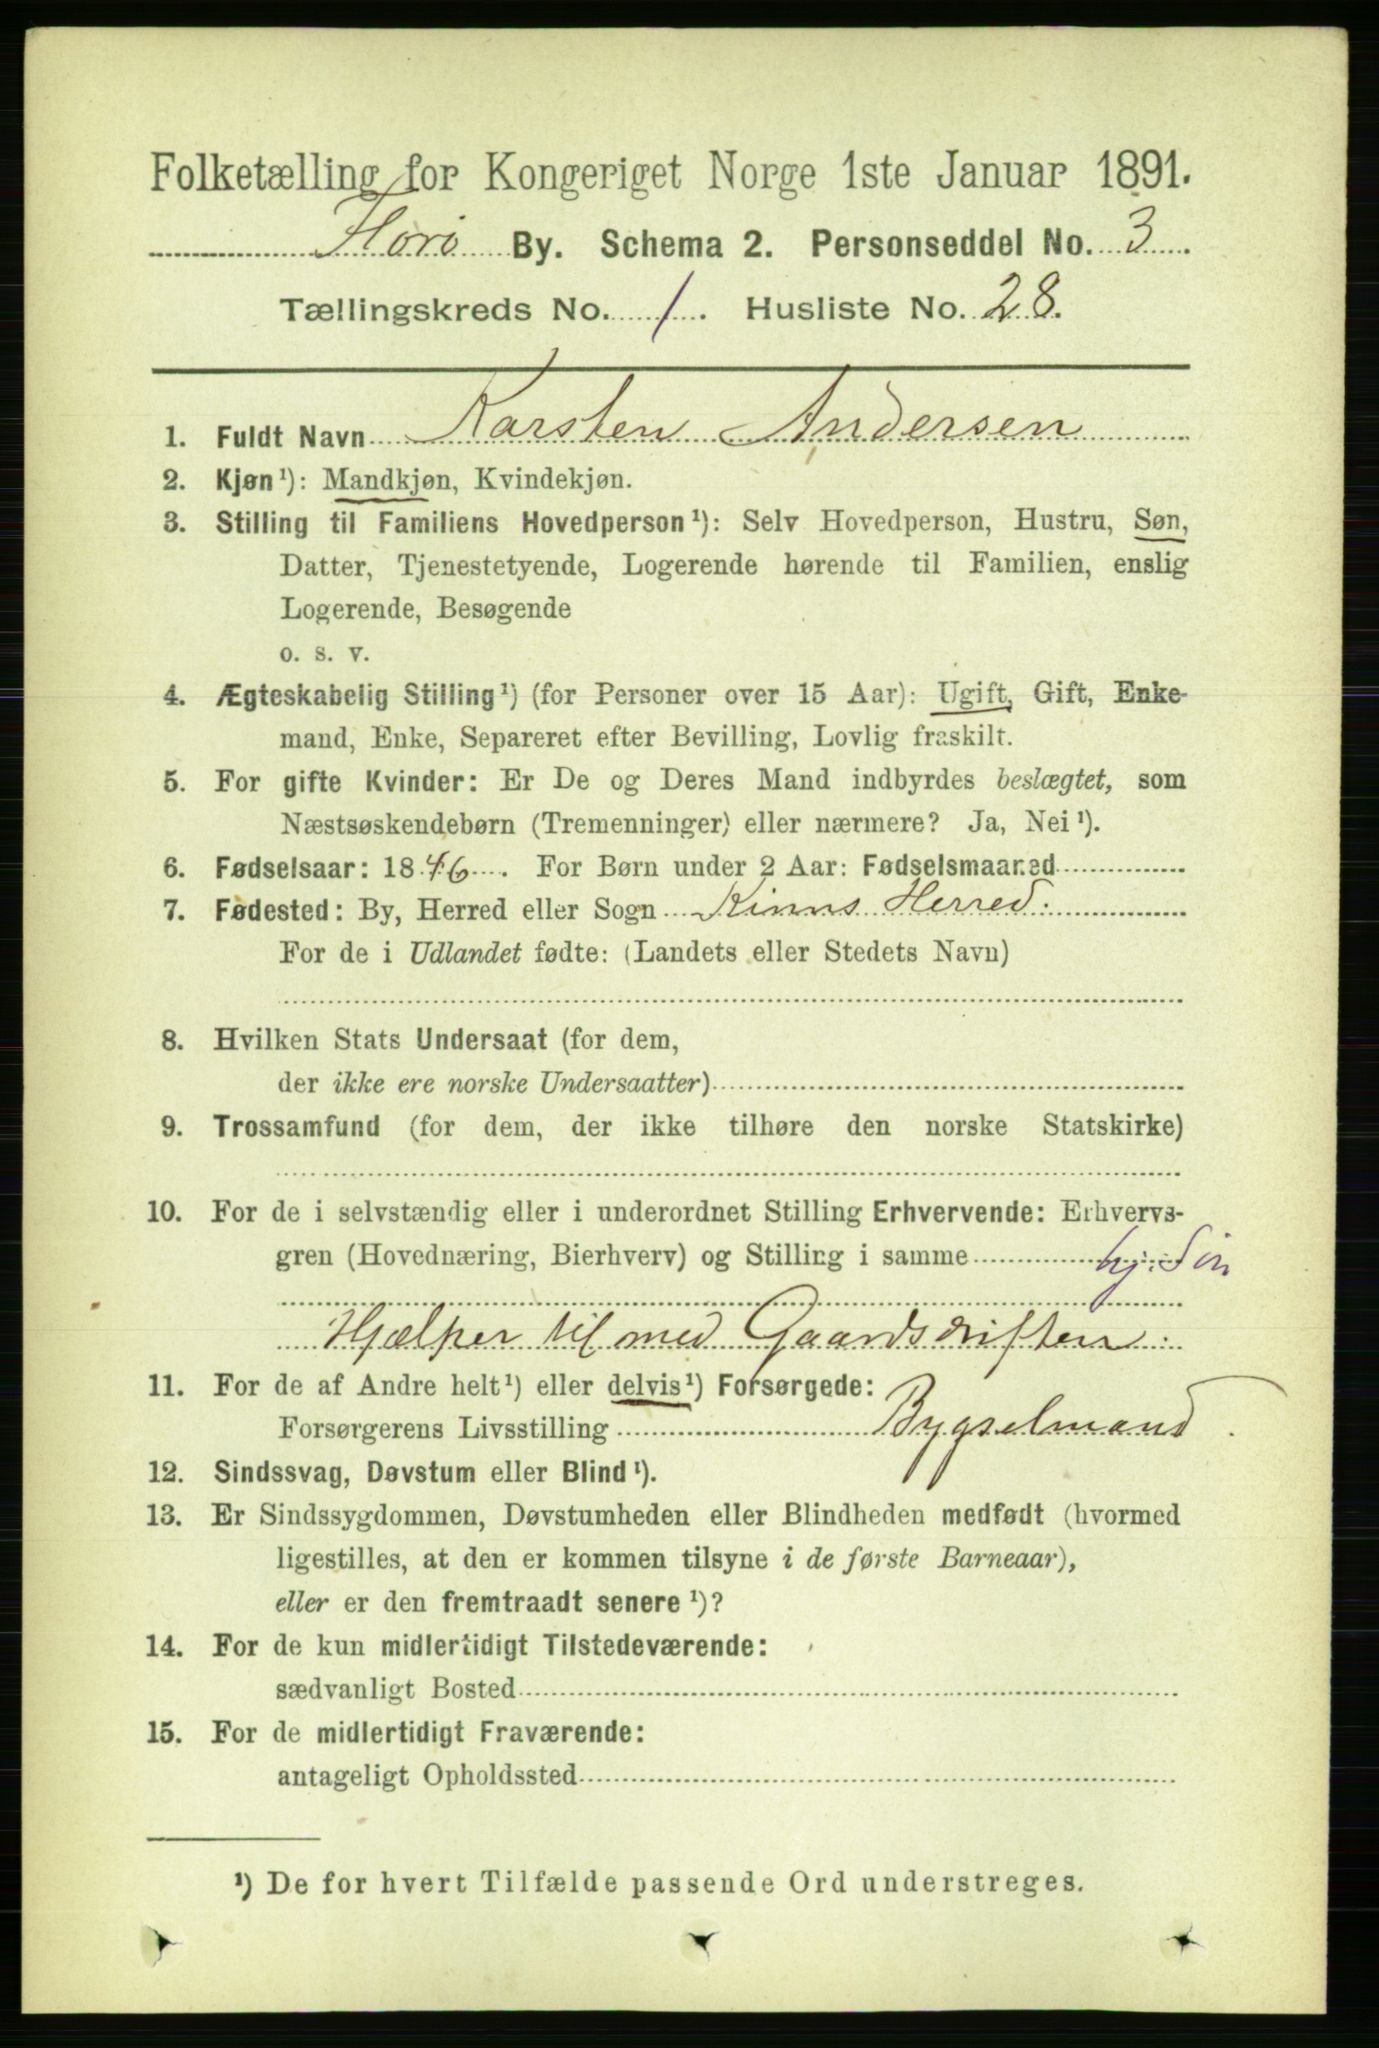 Folketælling for Kongeriget Norge 1ste Januar 1891.
Florö By. Schema 2. Personseddel No. 3.
Tællingskreds No. 1. Husliste No. 28.
1. Fuldt Navn Karsten Andersen
2. Kjøn¹): Mandkjøn, Kvindekjøn.
3. Stilling til Familiens Hovedperson¹): Selv Hovedperson, Hustru, Søn,
Datter, Tjenestetyende, Logerende hørende til Familien, enslig
Logerende, Besøgende
o. s. v.
4. Ægteskabelig Stilling¹) (for Personer over 15 Aar): Ugift, Gift, Enke-
mand, Enke, Separeret efter Bevilling, Lovlig fraskilt.
5. For gifte Kvinder: Er De og Deres Mand indbyrdes beslægtet, som
Næstsøskendebørn (Tremenninger) eller nærmere? Ja, Nei¹).
6. Fødselsaar: 1846. For Børn under 2 Aar: Fødselsmaaned
7. Fødested: By, Herred eller Sogn Kinns Herred.
For de i Udlandet fødte: (Landets eller Stedets Navn)
8. Hvilken Stats Undersaat (for dem,
der ikke ere norske Undersaatter)
9. Trossamfund (for dem, der ikke tilhøre den norske Statskirke)
10. For de i selvstændig eller i underordnet Stilling Erhvervende: Erhvervs-
gren (Hovednæring, Bierhverv) og Stilling i samme hj. Sön
Hjælper til med Gaardsdriften.
11. For de af Andre helt¹) eller delvis¹) Forsørgede:
Forsørgerens Livsstilling Bygselmand.
12. Sindssvag, Døvstum eller Blind¹).
13. Er Sindssygdommen, Døvstumheden eller Blindheden medfødt (hvormed
ligestilles, at den er kommen tilsyne i de første Barneaar),
eller er den fremtraadt senere¹)?
14. For de kun midlertidigt Tilstedeværende:
sædvanligt Bosted
15. For de midlertidigt Fraværende:
antageligt Opholdssted
¹) De for hvert Tilfælde passende Ord understreges.